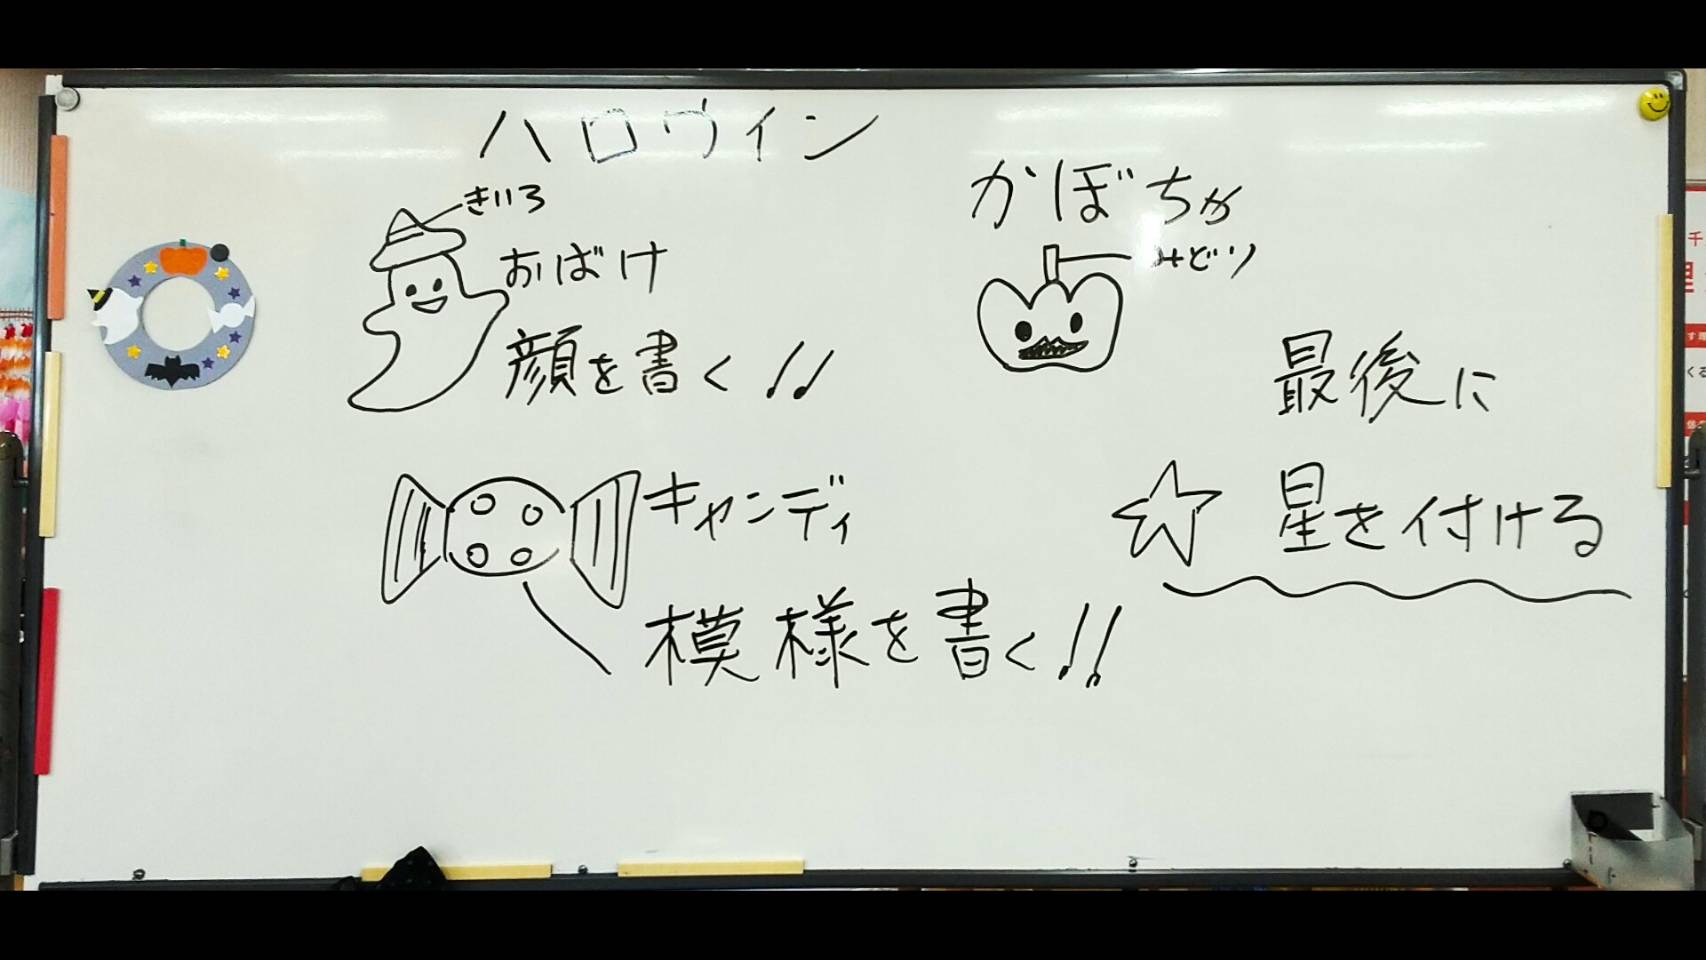 ハロウィン
きいろ
おばけ
顔を書く!!
かぼちゃ
みどり
キャンディ
模様を書く!!
最後に
星を付ける
千